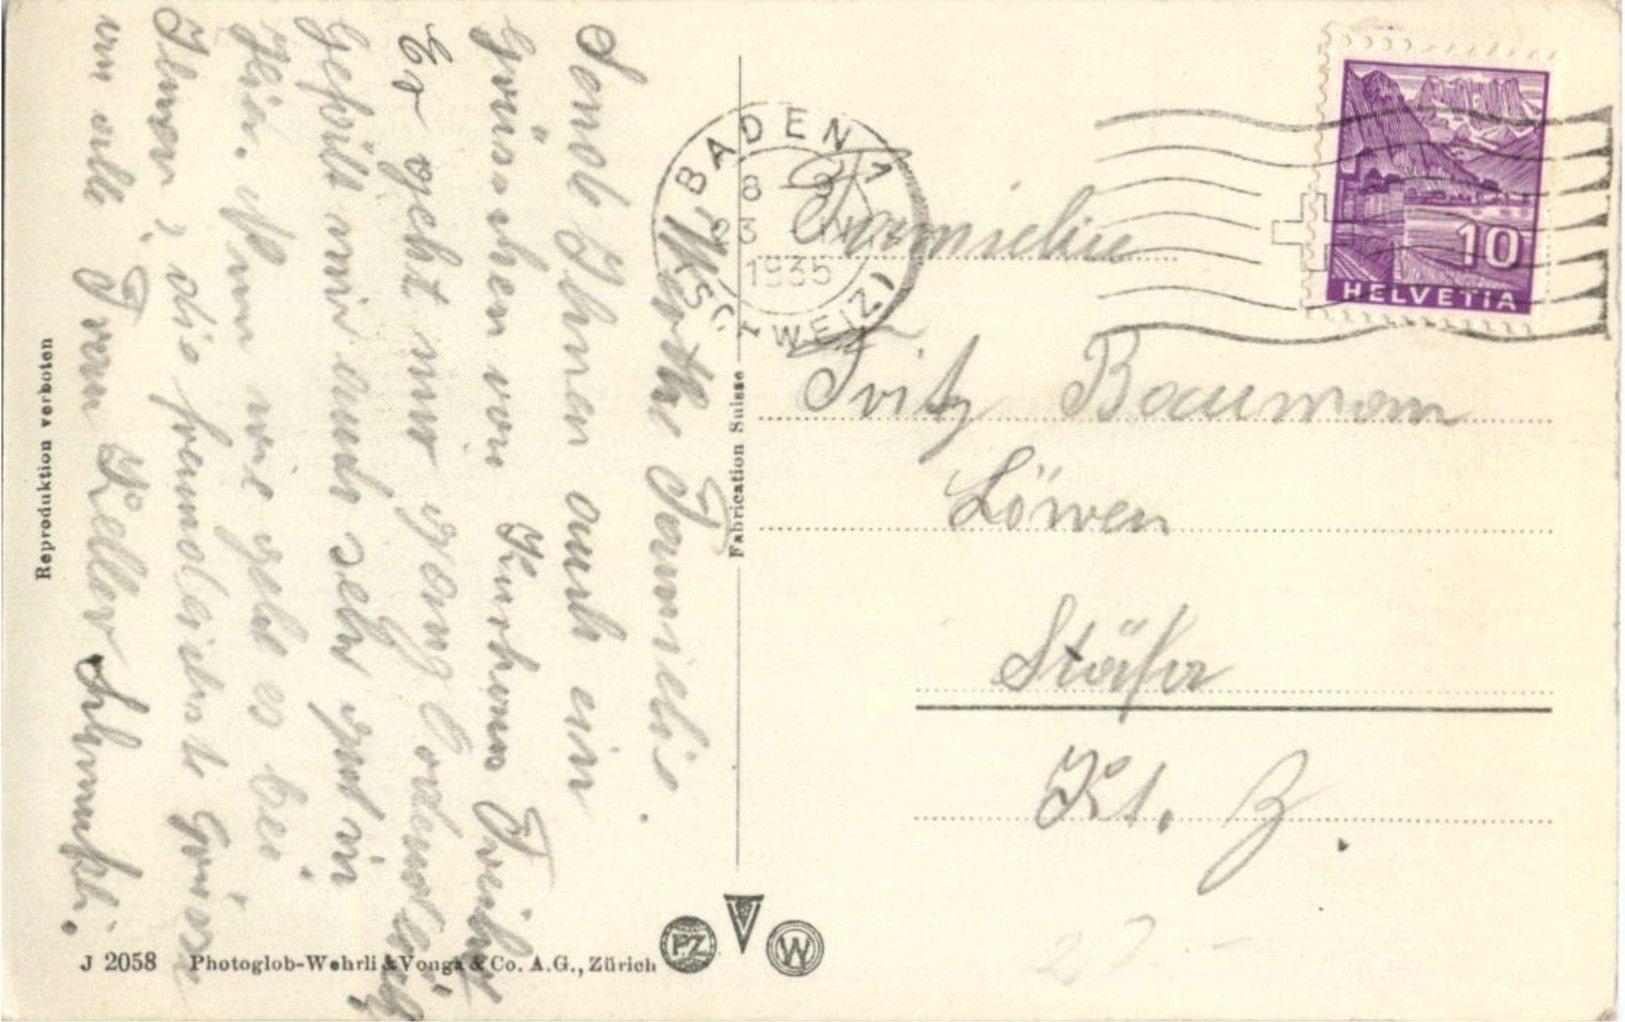 Werthe Familie.
Sende Ihnen auch ein
Grüsschen von Kurhaus Freihof
Es geht mir ganz ordentlich
Gefällt mir auch sehr gut in
hier. Nun wie geht es bei
Ihnen, die freundlichste Grüsse
an alle Frau Keller
Reproduktion verboten
J 2058 Photoglob-Wehrli & Vouga & Co. A.G., Zürich
Fabrication Suisse
PZ V W
BADEN 1
(SCHWEIZ)
8 - 9
1935
10
HELVETIA
Familie
Fritz Baumann
Löwen
Stäfa
Kt. Z.
27.-